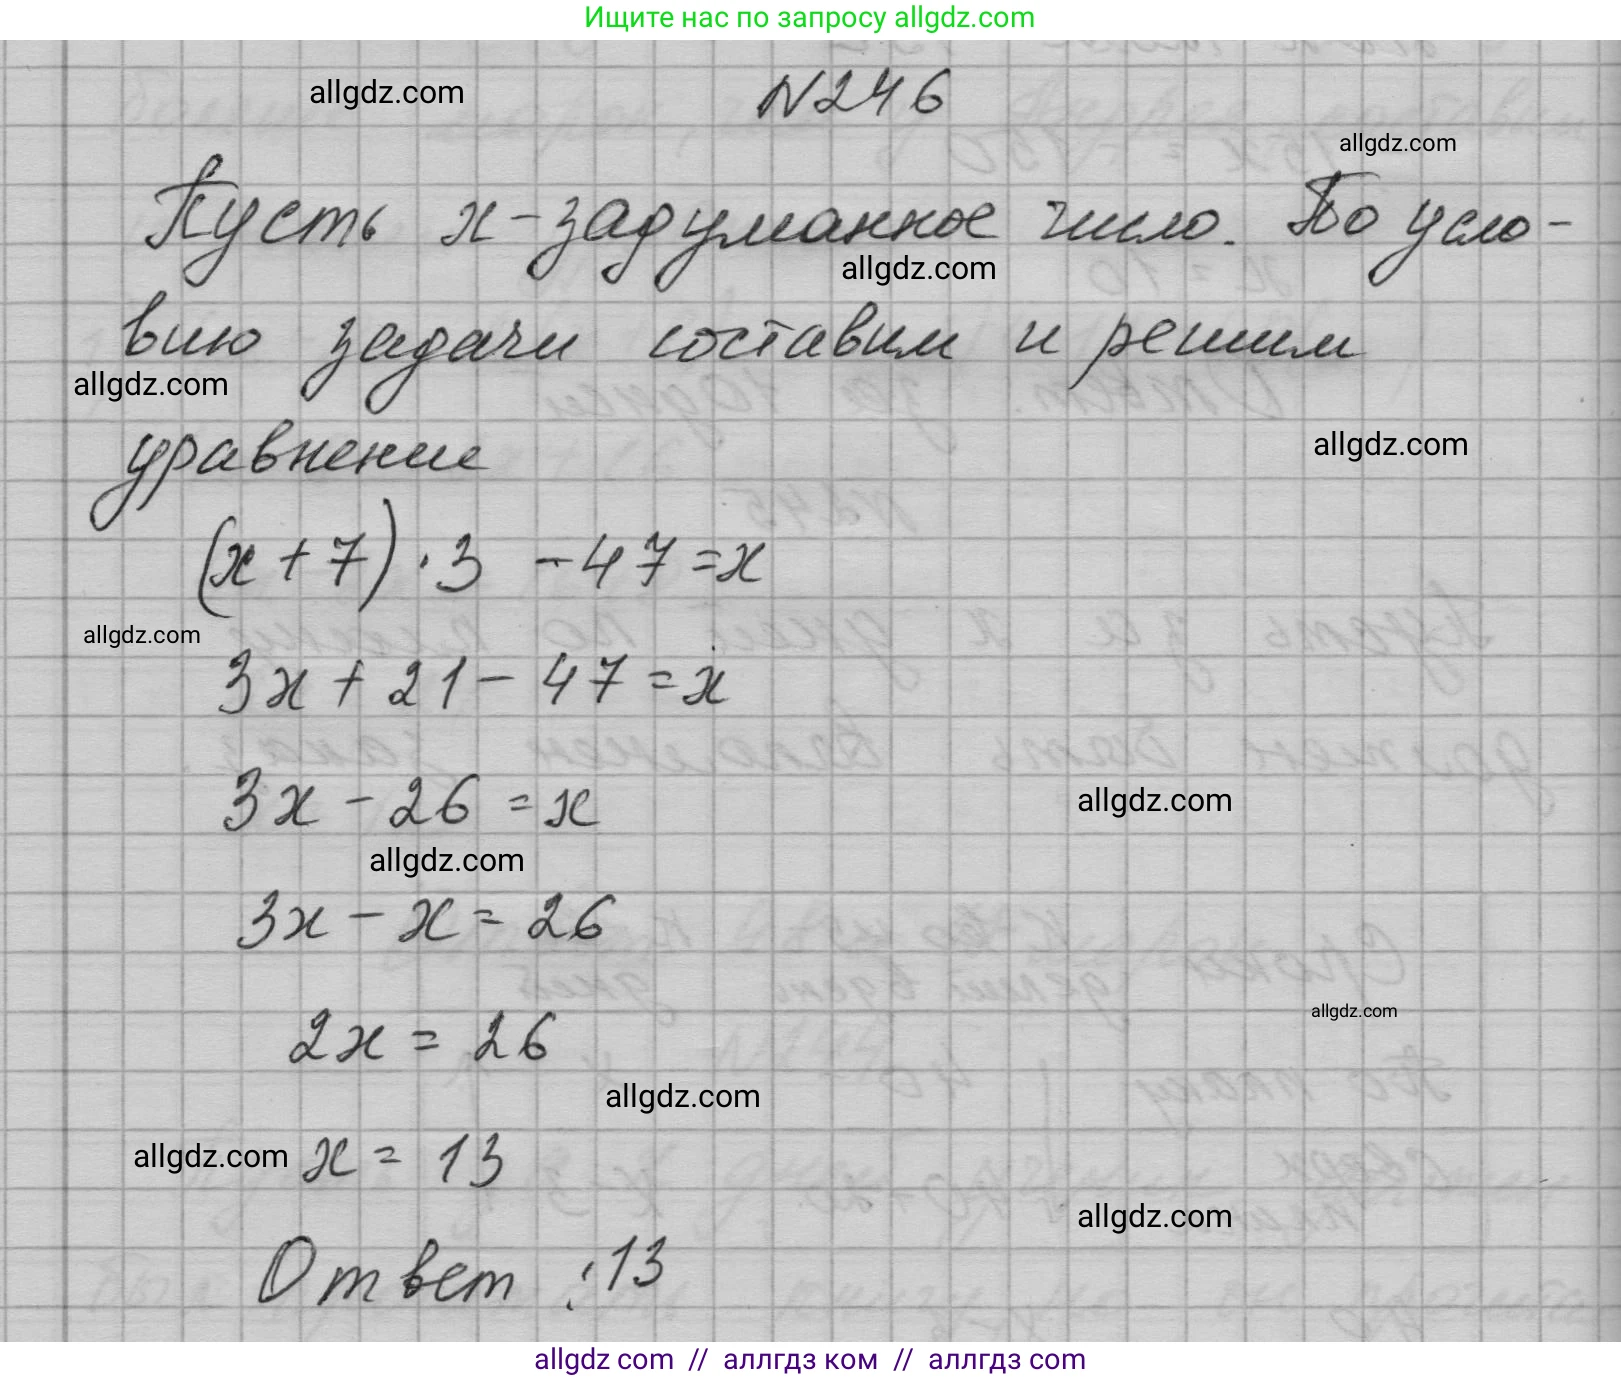 Ищите нас по запросу allgdz.com
allgdz.com
N246
allgdz.com
Пусть x - задуманное число. По усло-
allgdz.com
вию задачи составим и решим
allgdz.com
уравнение
allgdz.com
(x + 7) · 3 - 47 = x
allgdz.com
3x + 21 - 47 = x
3x - 26 = x
allgdz.com
allgdz.com
3x - x = 26
allgdz.com
2x = 26
allgdz.com
allgdz.com
x = 13
allgdz.com
Ответ : 13
allgdz.com // аллгдз ком // аллгдз com